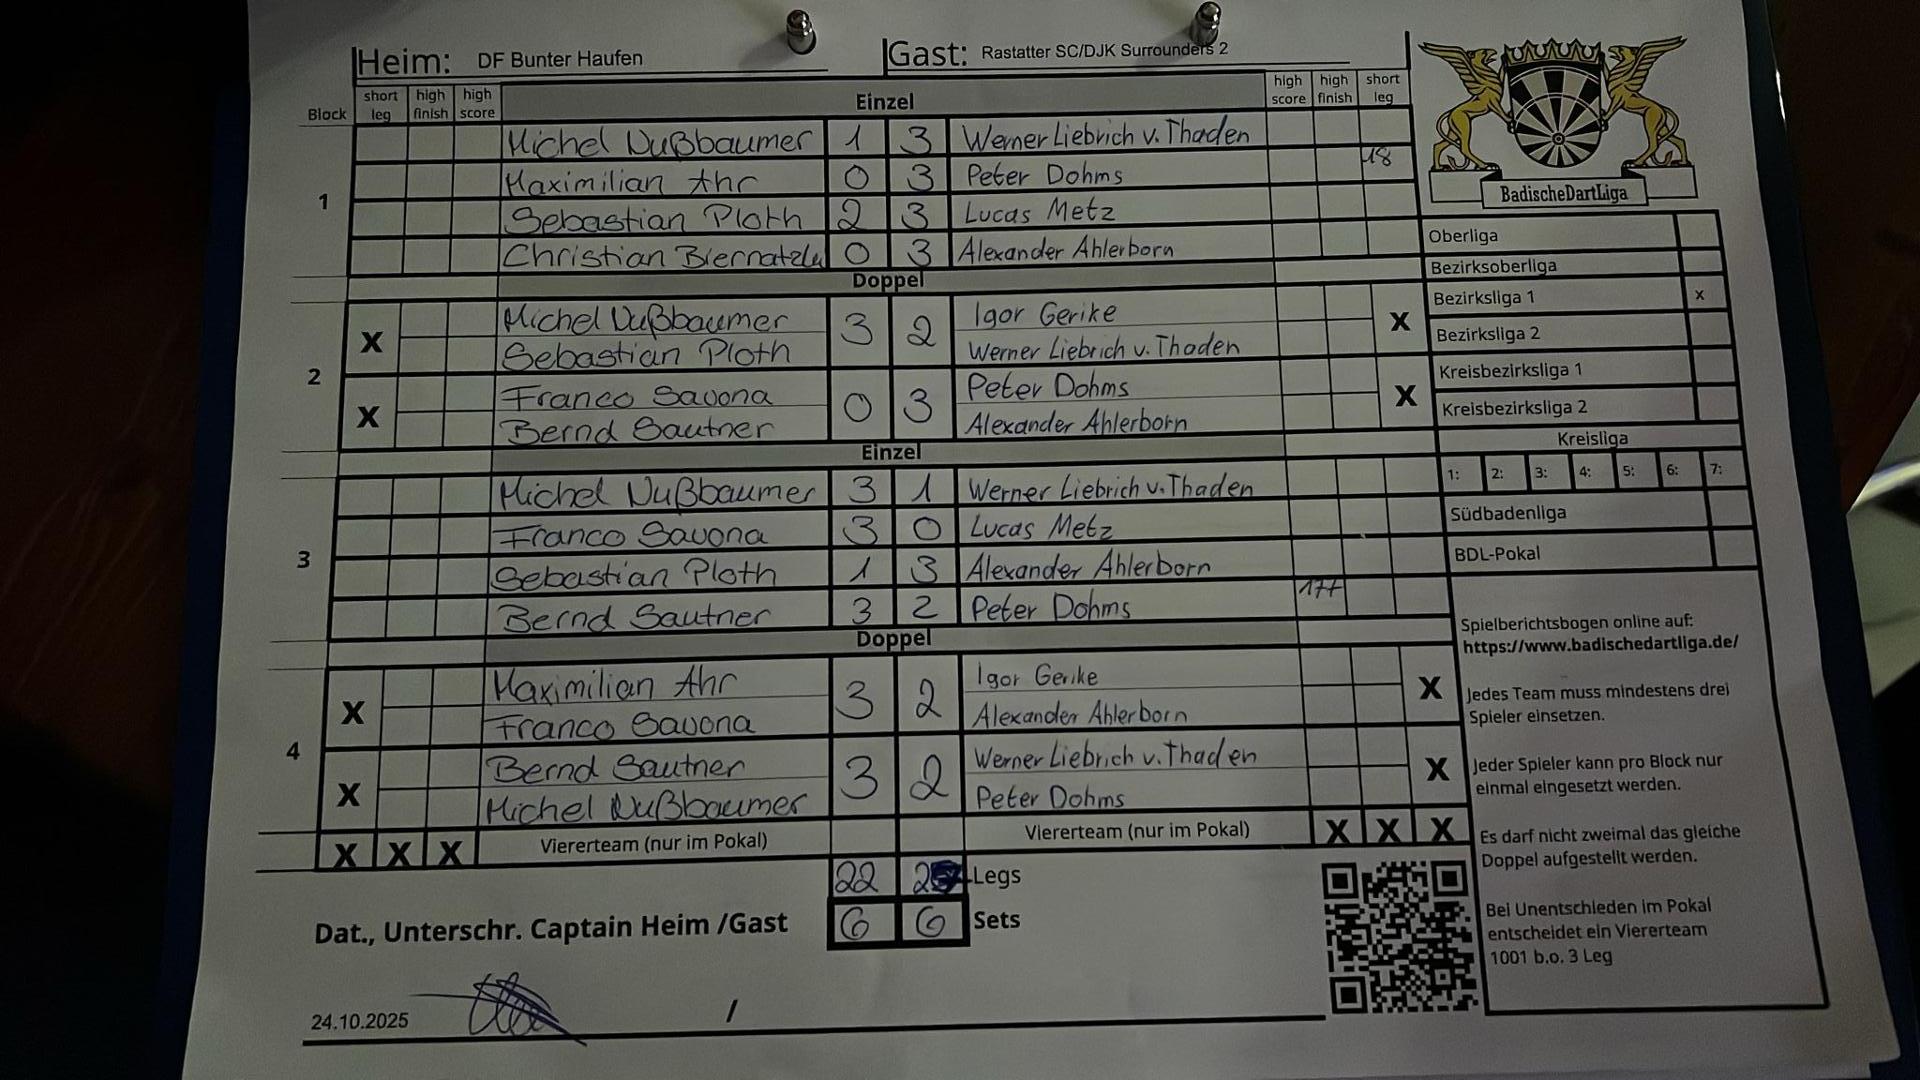 Heim: DF Bunter Haufen Gast: Rastatter SC/DJK Surrounders 2
Block short leg high finish high score Einzel high score high finish short leg
1
Michel Nußbaumer 1 3 Werner Liebrich v. Thaden
Maximilian Ahr 0 3 Peter Dohms 18
Sebastian Ploth 2 3 Lucas Metz
Christian 0 3 Alexander Ahlerborn
Doppel
2
X Michel Nußbaumer 3 2 Igor Gerike X
Sebastian Ploth Werner Liebrich v. Thaden
X Franco Savona 0 3 Peter Dohms X
Bernd Sautner Alexander Ahlerborn
Einzel
3
Michel Nußbaumer 3 1 Werner Liebrich v. Thaden
Franco Savona 3 0 Lucas Metz
Sebastian Ploth 1 3 Alexander Ahlerborn
Bernd Sautner 3 2 Peter Dohms 177
Doppel
4
X Maximilian Ahr 3 2 Igor Gerike X
Franco Savona Alexander Ahlerborn
X Bernd Sautner 3 2 Werner Liebrich v. Thaden X
Michel Nußbaumer Peter Dohms
X X X Viererteam (nur im Pokal) Viererteam (nur im Pokal) X X X
22 Legs
Dat., Unterschr. Captain Heim /Gast 6 6 Sets
24.10.2025 /
BadischeDartLiga
Oberliga
Bezirksoberliga
Bezirksliga 1 x
Bezirksliga 2
Kreisbezirksliga 1
Kreisbezirksliga 2
Kreisliga
1: 2: 3: 4: 5: 6: 7:
Südbadenliga
BDL-Pokal
Spielberichtsbogen online auf:
https://www.badischedartliga.de/
Jedes Team muss mindestens drei
Spieler einsetzen.
Jeder Spieler kann pro Block nur
einmal eingesetzt werden.
Es darf nicht zweimal das gleiche
Doppel aufgestellt werden.
Bei Unentschieden im Pokal
entscheidet ein Viererteam
1001 b.o. 3 Leg